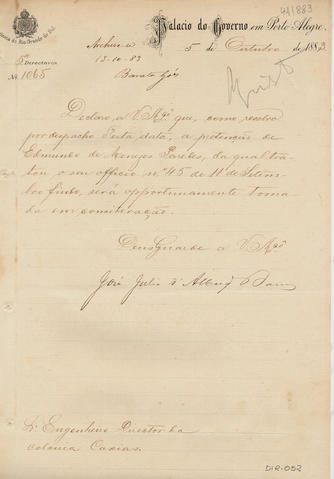 41/883
Palacio do Governo em Porto Alegre,
5 de Outubro de 1883
Archive-se
13-10-83
Barata Góes
Directoria
Nº 1065
Declaro a V Mcê que, como resolvi
por despacho desta data, a petenção de
Edmundo de Menezes Parêtes, da qual tra-
tou o seu officio nº 45 de 11 de Setem-
bro findo, será opportunamente toma-
da em consideração.
Deus Guarde a V Mcê
José Julio d'Albuqe Barros
Sr. Engenheiro Director da
colonia Caxias.
DIR-052